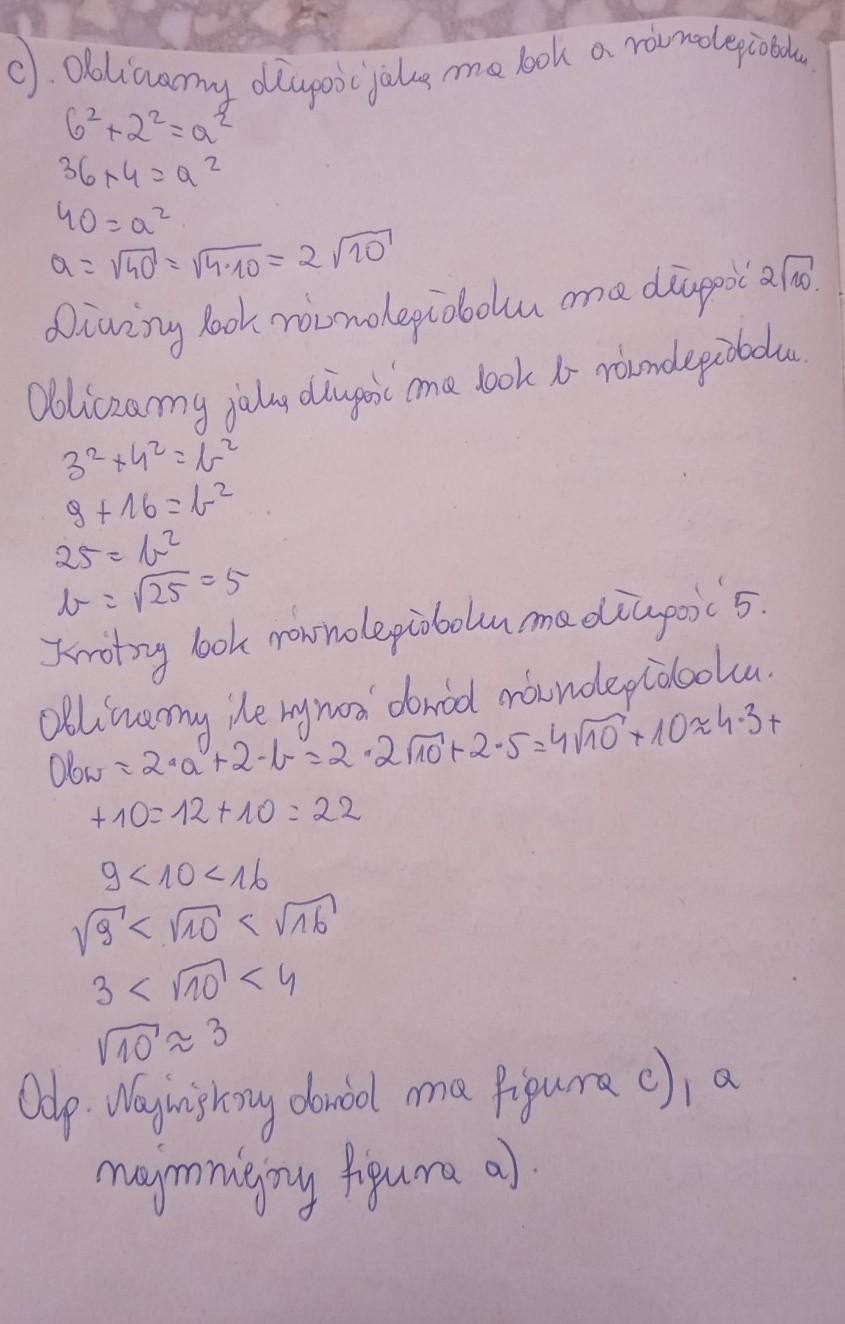 c). Obliczamy długość jaką ma bok a równoległoboku.
6² + 2² = a²
36 + 4 = a²
40 = a²
a = √40 = √4·10 = 2√10
Dłuższy bok równoległoboku ma długość 2√10.
Obliczamy jaką długość ma bok b równoległoboku.
3² + 4² = b²
9 + 16 = b²
25 = b²
b = √25 = 5
Krótszy bok równoległoboku ma długość 5.
Obliczamy ile wynosi obwód równoległoboku.
Obw = 2·a + 2·b = 2·2√10 + 2·5 = 4√10 + 10 ≈ 4·3 +
+10 = 12 + 10 = 22
9 < 10 < 16
√9 < √10 < √16
3 < √10 < 4
√10 ≈ 3
Odp. Największy obwód ma figura c), a
najmniejszy figura a).